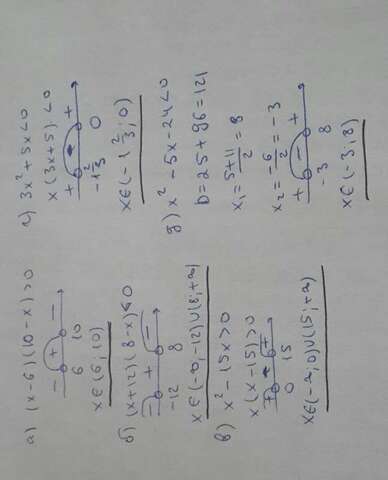 а) (x-6)(10-x)>0
- + -
6 10
x∈(6;10)
б) (x+12)(8-x)≤0
- + -
-12 8
x∈(-∞,-12)∪(8;+∞)
в) x²-15x>0
x(x-15)>0
+ - +
0 15
x∈(-∞;0)∪(15;+∞)
г) 3x²+5x<0
x(3x+5)<0
+ - +
-1 2/3 0
x∈(-1 2/3; 0)
д) x²-5x-24<0
D=25+96=121
x₁=5+11/2=8
x₂=-6/2=-3
+ - +
-3 8
x∈(-3;8)